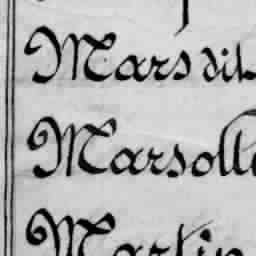 Mars dit
Marsolle
Martin